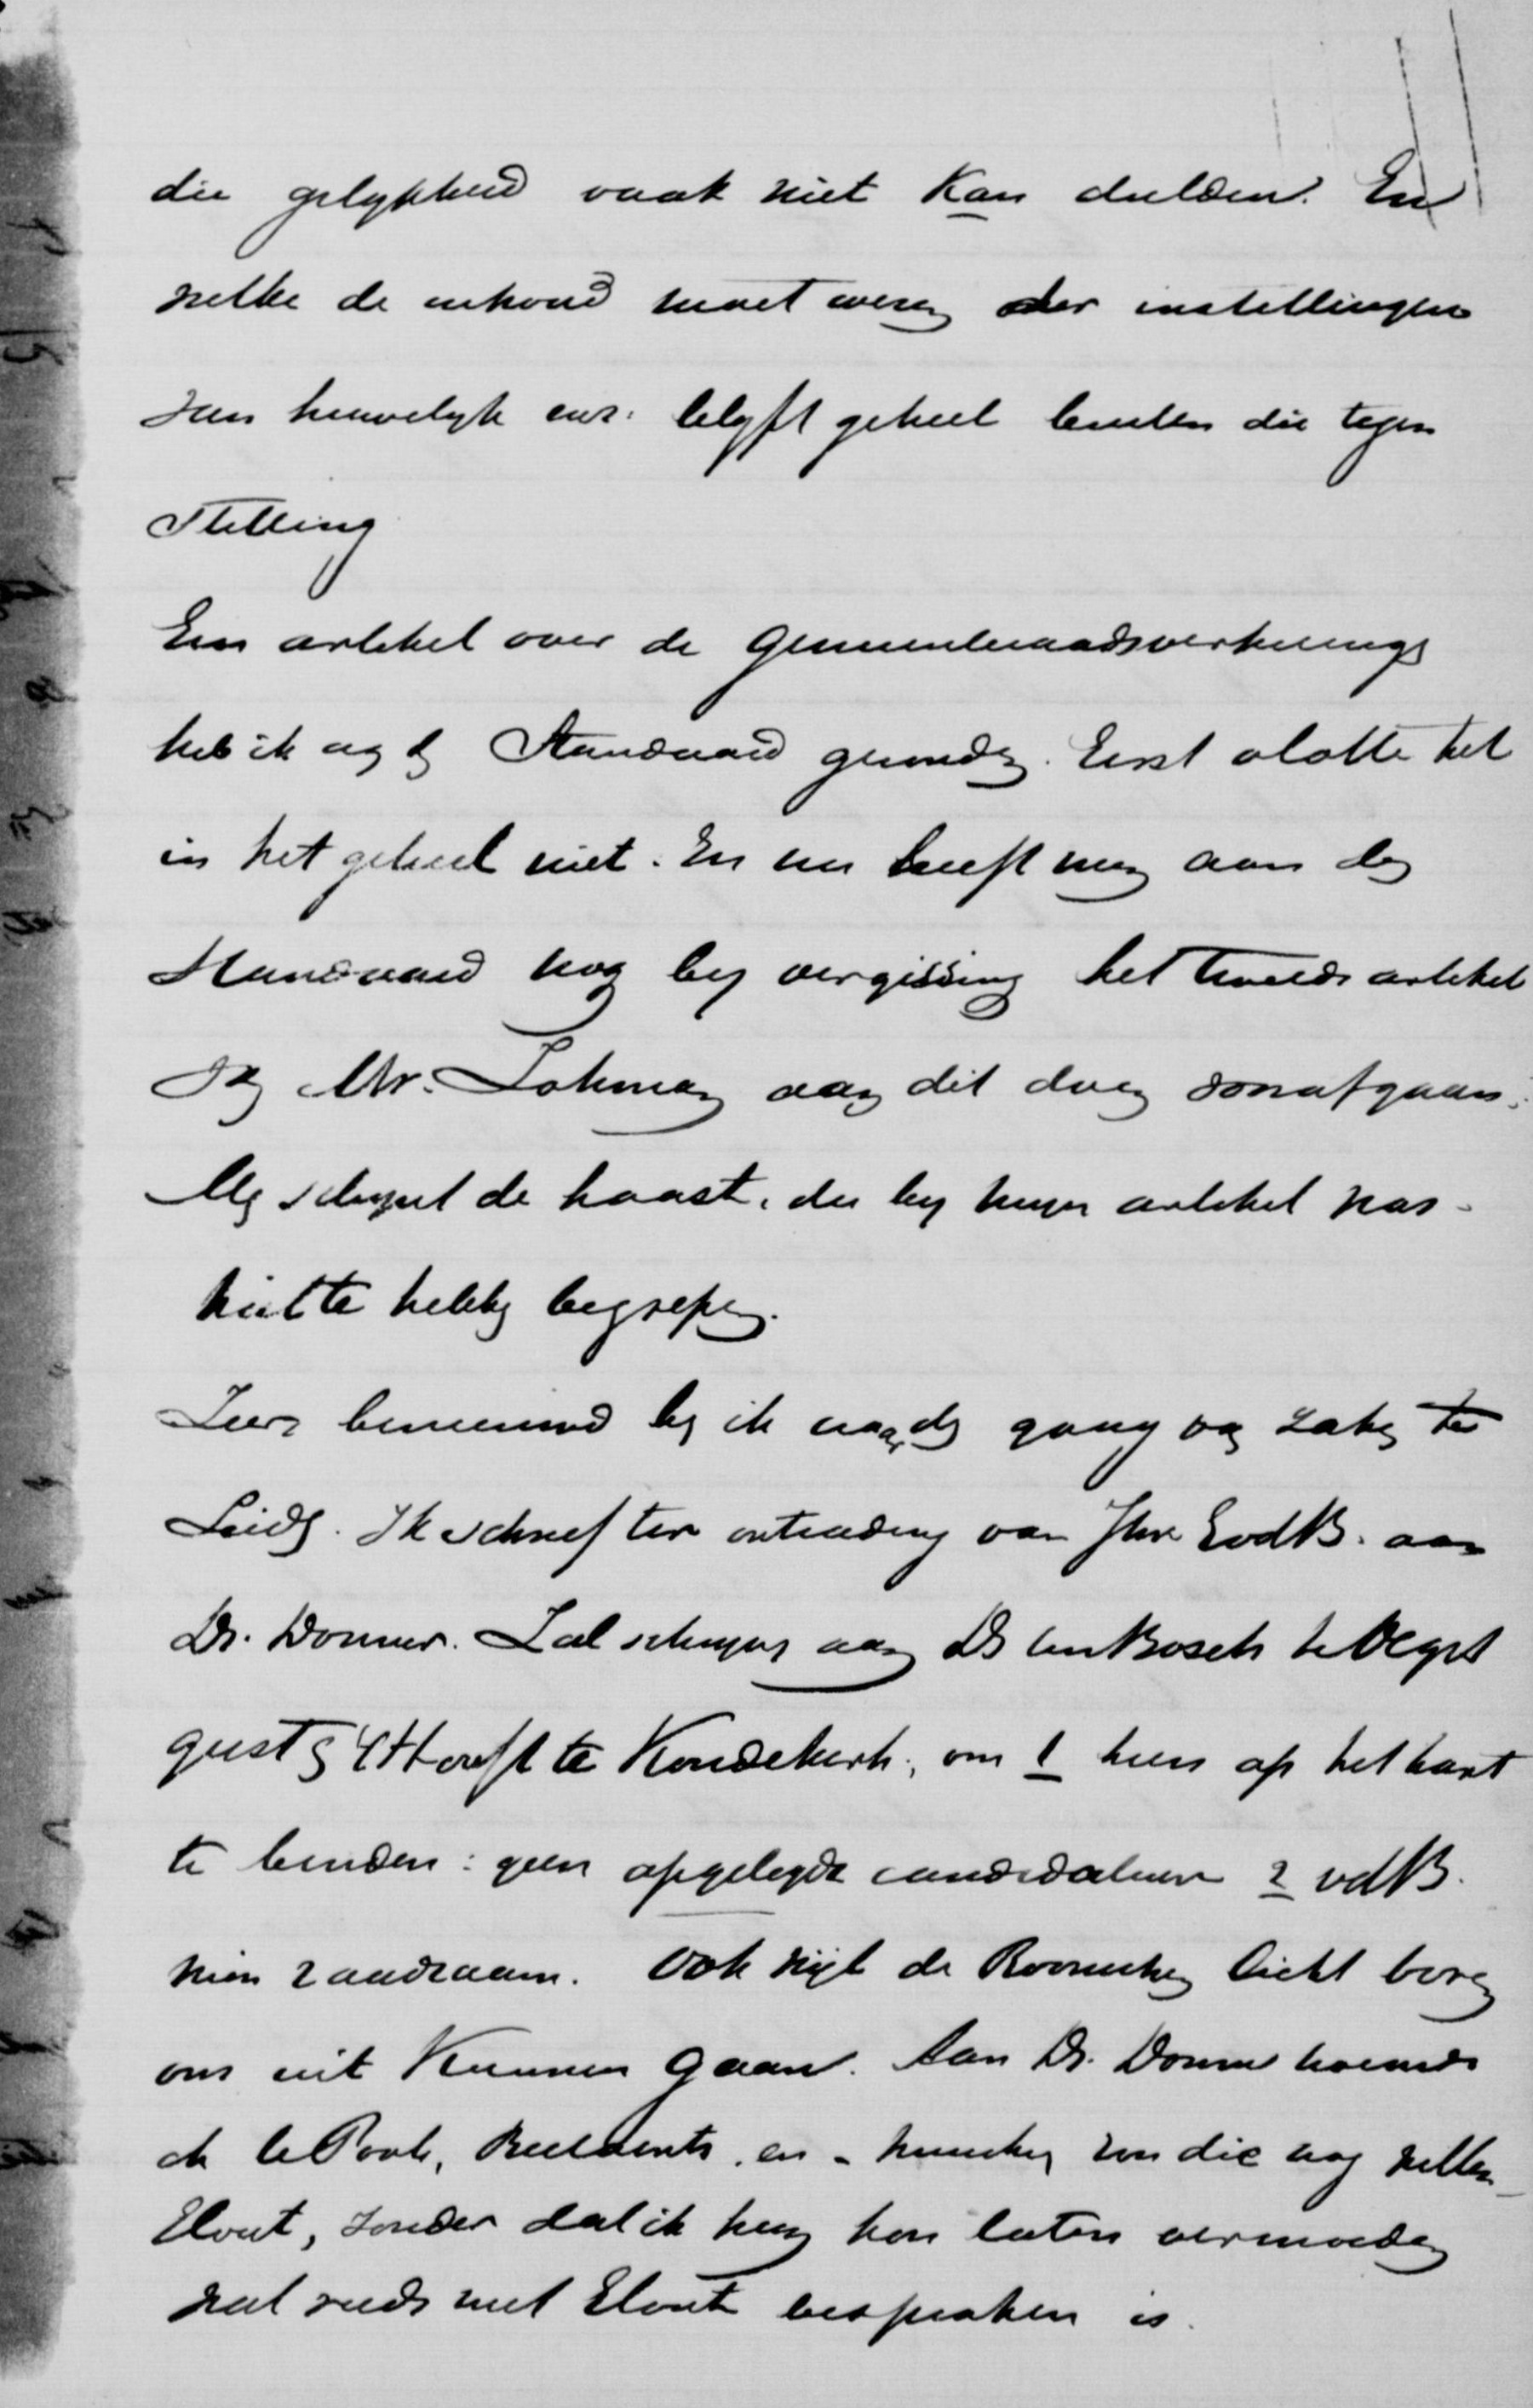 die gelykheid vaak niet kan dulden. En
welke de inhoud moet wezen der instellingen
van huwelyk enz. blyft geheel buiten die tegen
stelling
Een artikel over de gemeenteraadsverkiezings
heb ik aan de Standaard gezonden. Eerst vlotte het
in het geheel niet. En nu heeft men aan den
Standaard nog by vergissing het tweede artikel
van Mr. Lohman aan dit doen voorafgaan.
My schynt de haast, die by myn artikel was
niet te hebben begrepen.
Zeer benieuwd ben ik naar den gang van zaken te
Leiden. Ik schreef ter ontrading van Jhr EvdB. aan
Dr. Donner. Zal schryven aan Ds ten Bosch te Oegst
geest & 't Hooft te Koudekerk, om 1 hun op het hart
te binden: geen opgelegde candidaturen 2 vdB.
niet raadzaam. Ook wyl de Roomschen licht boven
ons uit kunnen gaan. Aan Dr. Donner noemde
ik le Poole, Beelaerts, en - kunnen wy die nog zetten
Elout, zonder dat ik hem kon laten vermoeden
wat reeds met Elout besproken is.